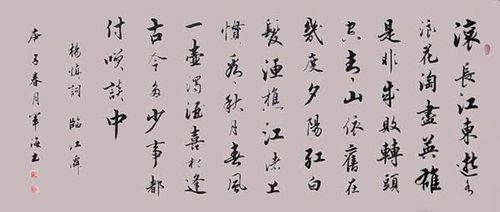 滚々長江東逝水
浪花淘盡英雄
是非成敗轉頭
空青山依舊在
幾度夕陽紅白
髮漁樵江渚上
慣看秋月春風
一壺濁酒喜相逢
古今多少事都
付笑談中
楊慎詞 臨江僊
庚子春月軍海书